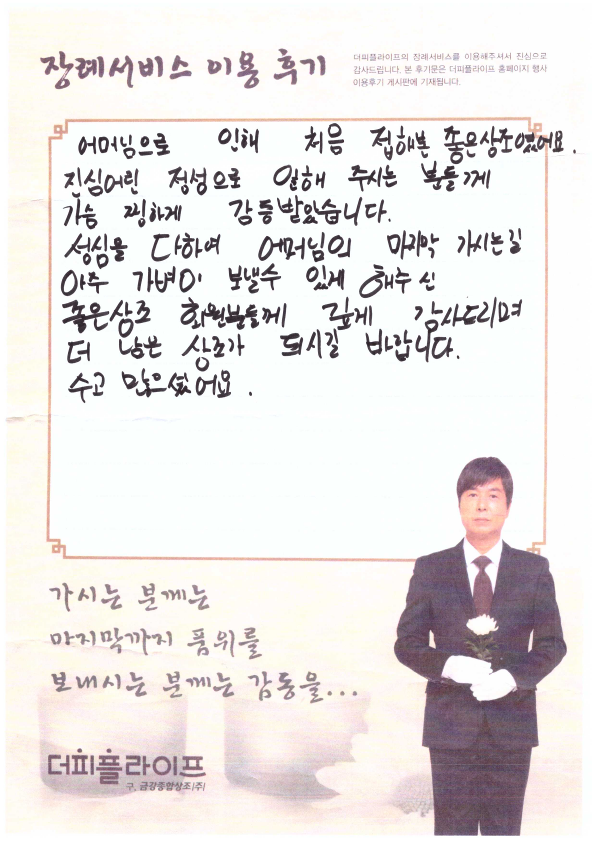 장례서비스 이용 후기
더피플라이프의 장례서비스를 이용해주셔서 진심으로
감사드립니다. 본 후기문은 더피플라이프 홈페이지 행사
이용후기 게시판에 기재됩니다.
어머님으로 인해 처음 접해본 좋은상조였어요.
진심어린 정성으로 일해 주시는 분들께
가슴 찡하게 감동받았습니다.
성심을 다하여 어머님의 마지막 가시는길
아주 가볍이 보낼수 있게 해주신
좋은상조 회원분들께 깊게 감사드리며
더 낳은 상조가 되시길 바랍니다.
수고 많으셨어요.
가시는 분께는
마지막까지 품위를
보내시는 분께는 감동을...
더피플라이프
구. 금강종합상조(주)